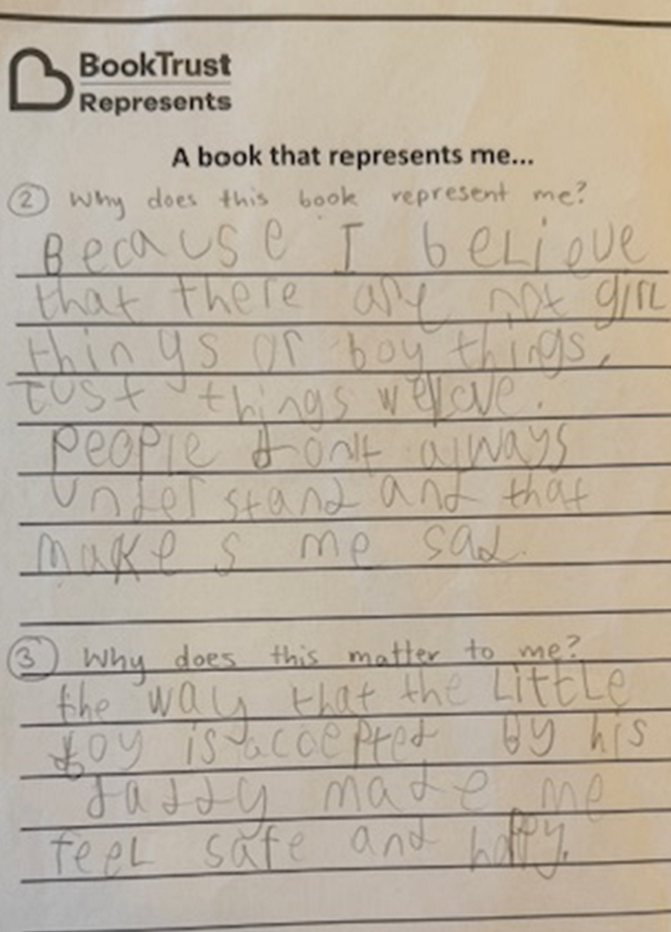 BookTrust
Represents
A book that represents me...
2 Why does this book represent me?
Because I believe
that there are not girl
things or boy things,
Just things we love.
People don't always
understand and that
makes me sad.
3 Why does this matter to me?
the way that the Little
boy is accoepted by his
daddy made me
feel safe and happy.